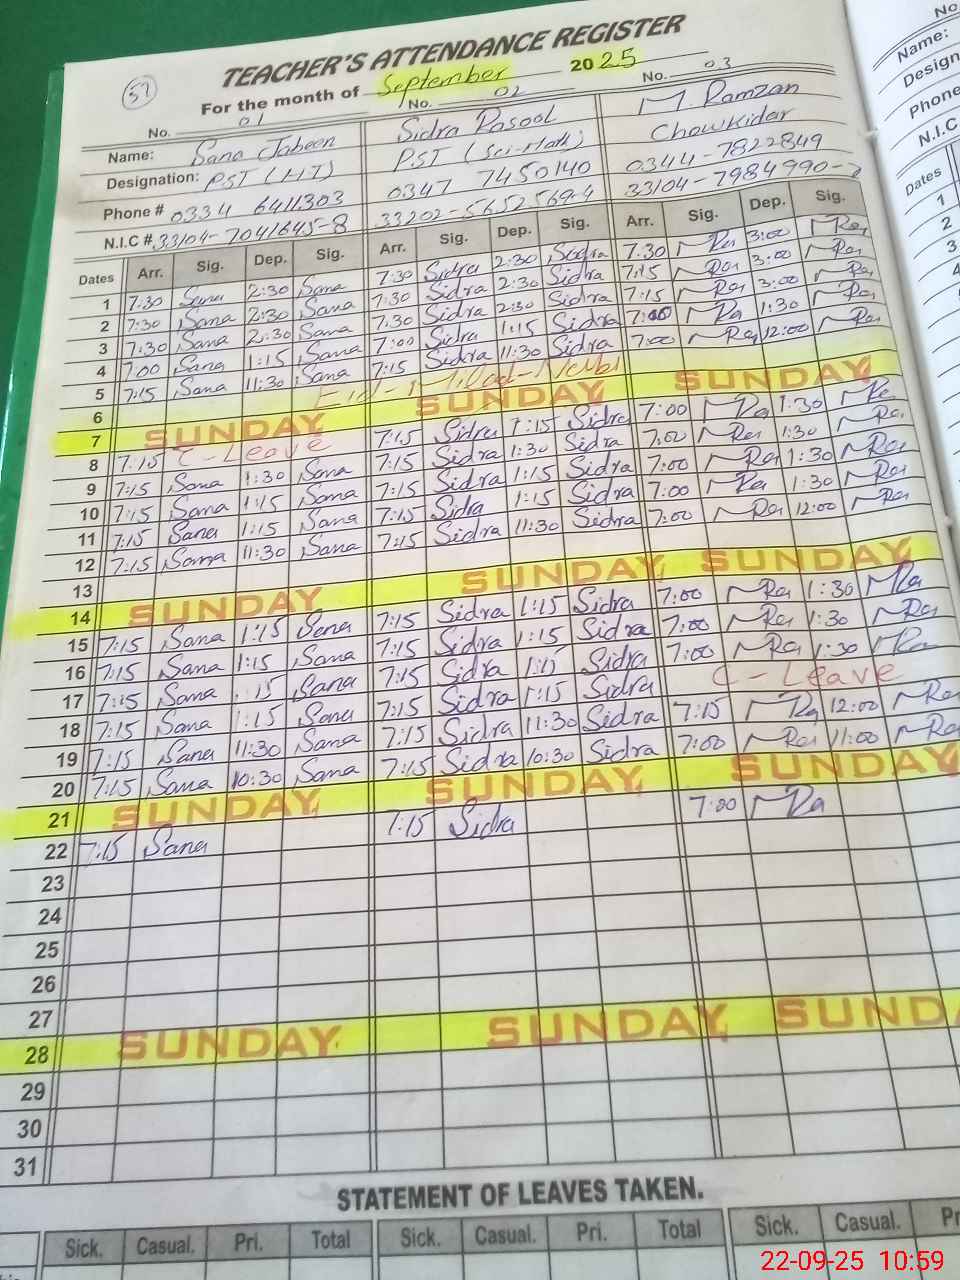 57
TEACHER'S ATTENDANCE REGISTER
For the month of September 2025
No. 01 No. 02 No. 03
Name: Sana Jabeen Sidra Rasool M. Ramzan
Designation: PST (HT) PST (Sci-Math) Chowkidar
Phone # 0334 6411303 0347 7450140 0344-7822849
N.I.C # 33104-7041645-8 33202-5652569-4 33104-7984990-
Dates Arr. Sig. Dep. Sig. Arr. Sig. Dep. Sig. Arr. Sig. Dep. Sig.
1 7:30 Sana 2:30 Sana 7:30 Sidra 2:30 Sidra 7:30 3:00
2 7:30 Sana 2:30 Sana 7:30 Sidra 2:30 Sidra 7:15 3:00
3 7:30 Sana 2:30 Sana 7:30 Sidra 2:30 Sidra 7:15 3:00
4 7:00 Sana 1:15 Sana 7:00 Sidra 1:15 Sidra 7:00 1:30
5 7:15 Sana 11:30 Sana 7:15 Sidra 11:30 Sidra 7:00 12:00
6 Eid-Milad-
7 SUNDAY SUNDAY SUNDAY
8 7:15 C-Leave 7:15 Sidra 1:15 Sidra 7:00 1:30
9 7:15 Sana 1:30 Sana 7:15 Sidra 1:30 Sidra 7:00 1:30
10 7:15 Sana 1:15 Sana 7:15 Sidra 1:15 Sidra 7:00 1:30
11 7:15 Sana 1:15 Sana 7:15 Sidra 1:15 Sidra 7:00 1:30
12 7:15 Sana 11:30 Sana 7:15 Sidra 11:30 Sidra 7:00 12:00
13
14 SUNDAY SUNDAY SUNDAY
15 7:15 Sana 1:15 Sana 7:15 Sidra 1:15 Sidra 7:00 1:30
16 7:15 Sana 1:15 Sana 7:15 Sidra 1:15 Sidra 7:00 1:30
17 7:15 Sana 1:15 Sana 7:15 Sidra 1:15 Sidra 7:00 1:30
18 7:15 Sana 1:15 Sana 7:15 Sidra 1:15 Sidra C-Leave
19 7:15 Sana 11:30 Sana 7:15 Sidra 11:30 Sidra 7:15 12:00
20 7:15 Sana 10:30 Sana 7:15 Sidra 10:30 Sidra 7:00 11:00
21 SUNDAY SUNDAY SUNDAY
22 7:15 Sana 7:15 Sidra 7:00
23
24
25
26
27
28 SUNDAY SUNDAY SUNDAY
29
30
31
STATEMENT OF LEAVES TAKEN.
Sick. Casual. Pri. Total Sick. Casual. Pri. Total Sick. Casual.
No
Name:
Design
Phone
N.I.C
Dates
1
2
3
4
22-09-25 10:59